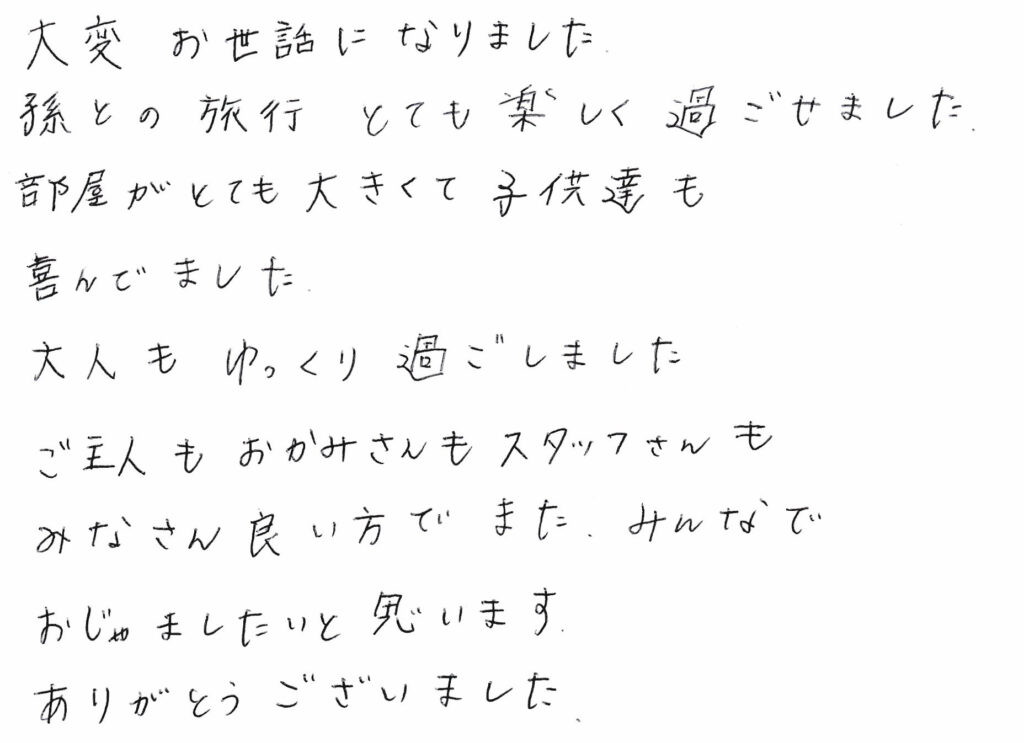 大変 お世話に なりました.
孫との 旅行 とても 楽しく 過ごせました.
部屋がとても 大きくて 子供達も
喜んでました.
大人も ゆっくり 過ごしました
ご主人も おかみさんも スタッフさんも
みなさん 良い方で また、みんなで
おじゃましたいと 思います.
ありがとう ございました.